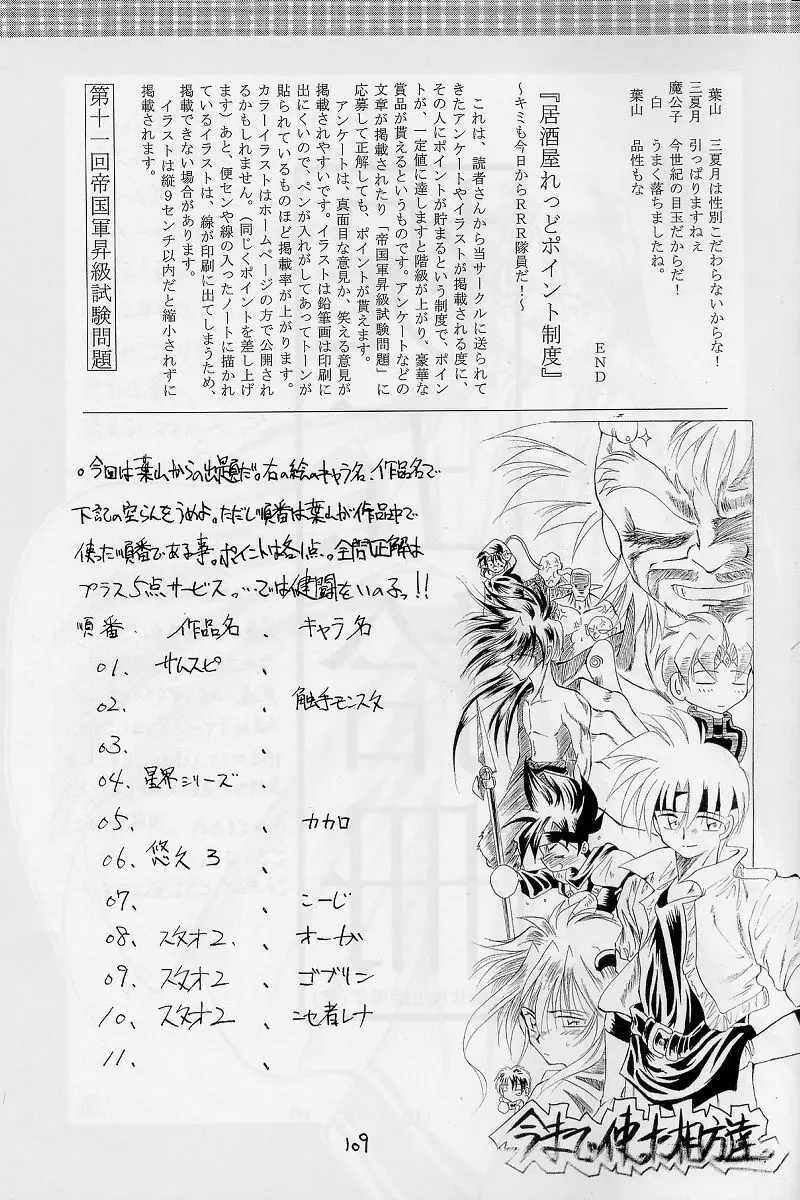 葉山　三夏月は性別こだわらないからな！
三夏月　引っぱりますねえ
魔公子　今世紀の目玉だからだ！
白　うまく落ちましたね。
葉山　品性もな
END
『居酒屋れっどポイント制度』
～キミも今日からＲＲＲ隊員だ！～
これは、読者さんから当サークルに送られて
きたアンケートやイラストが掲載される度に、
その人にポイントが貯まるという制度で、ポイン
トが、一定値に達しますと階級が上がり、豪華な
賞品が貰えるというものです。アンケートなどの
文章が掲載されたり「帝国軍昇級試験問題」に
応募して正解しても、ポイントが貰えます。
アンケートは、真面目な意見か、笑える意見が
掲載されやすいです。イラストは鉛筆画は印刷に
出にくいので、ペンが入れがしてあってトーンが
貼られているものほど掲載率が上がります。
カラーイラストはホームページの方で公開され
るかもしれません。（同じくポイントを差し上げ
ます）あと、便センや線の入ったノートに描かれ
ているイラストは、線が印刷に出てしまうため、
掲載できない場合があります。
イラストは縦９センチ以内だと縮小されずに
掲載されます。
第十一回帝国軍昇級試験問題
。今回は葉山からの出題だ。右の絵のキャラ名、作品名で
下記の空らんをうめよ。ただし順番は葉山が作品中で
使った順番である事。ポイントは各1点。全問正解は
プラス5点サービス。…では健闘をいのるっ！！
順番　作品名、キャラ名
01. サムスピ、
02.　、触手モンスタ
03.　、
04. 星界シリーズ、
05.　、カカロ
06. 悠久3、
07.　、こーじ
08. スタオ2.、オーガ
09. スタオ2、ゴブリン
10. スタオ2、ニセ者レナ
11.　、
今まで使った相方達
109